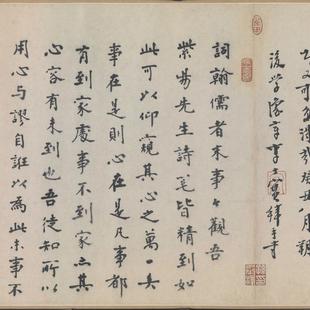 八月
後學
詞翰儒者末事今觀吾
紫陽先生詩筆皆精到如
此可以仰窺其心之萬一矣
事在是則心在是凡事都
有到家處事不到家亦其
心容有未到也吾徒知所以
用心与謬自誑以為此末事不